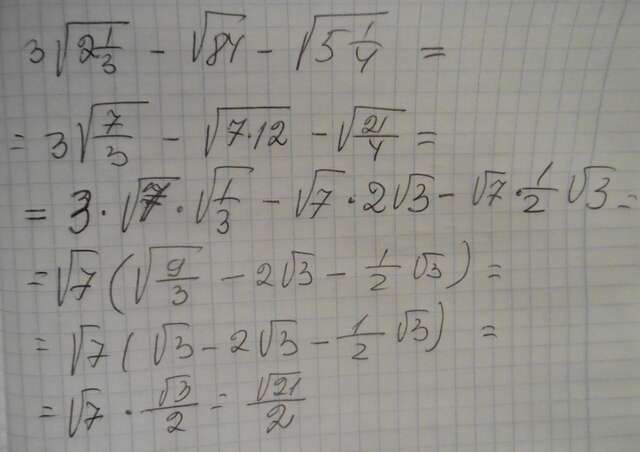 3√(2 1/3) - √84 - √(5 1/4) =
= 3√(7/3) - √(7·12) - √(21/4) =
= 3·√7·√(1/3) - √7·2√3 - √7·1/2√3 =
= √7(√(9/3) - 2√3 - 1/2√3) =
= √7(√3 - 2√3 - 1/2√3) =
= √7·√3/2 = √21/2